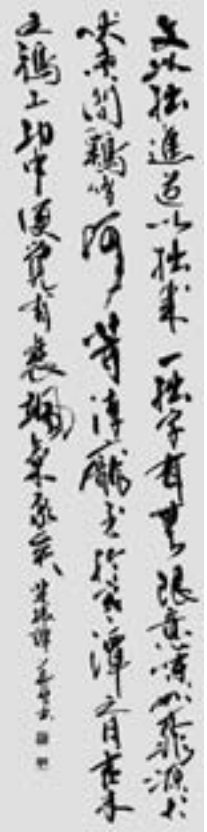 文以拙進道以拙成一拙字有無限意味如桃源犬
吠桑間鷄鳴何等淳龐至於寒潭之月古木
之鴉工巧中便覺有衰颯氣象矣 菜根譚